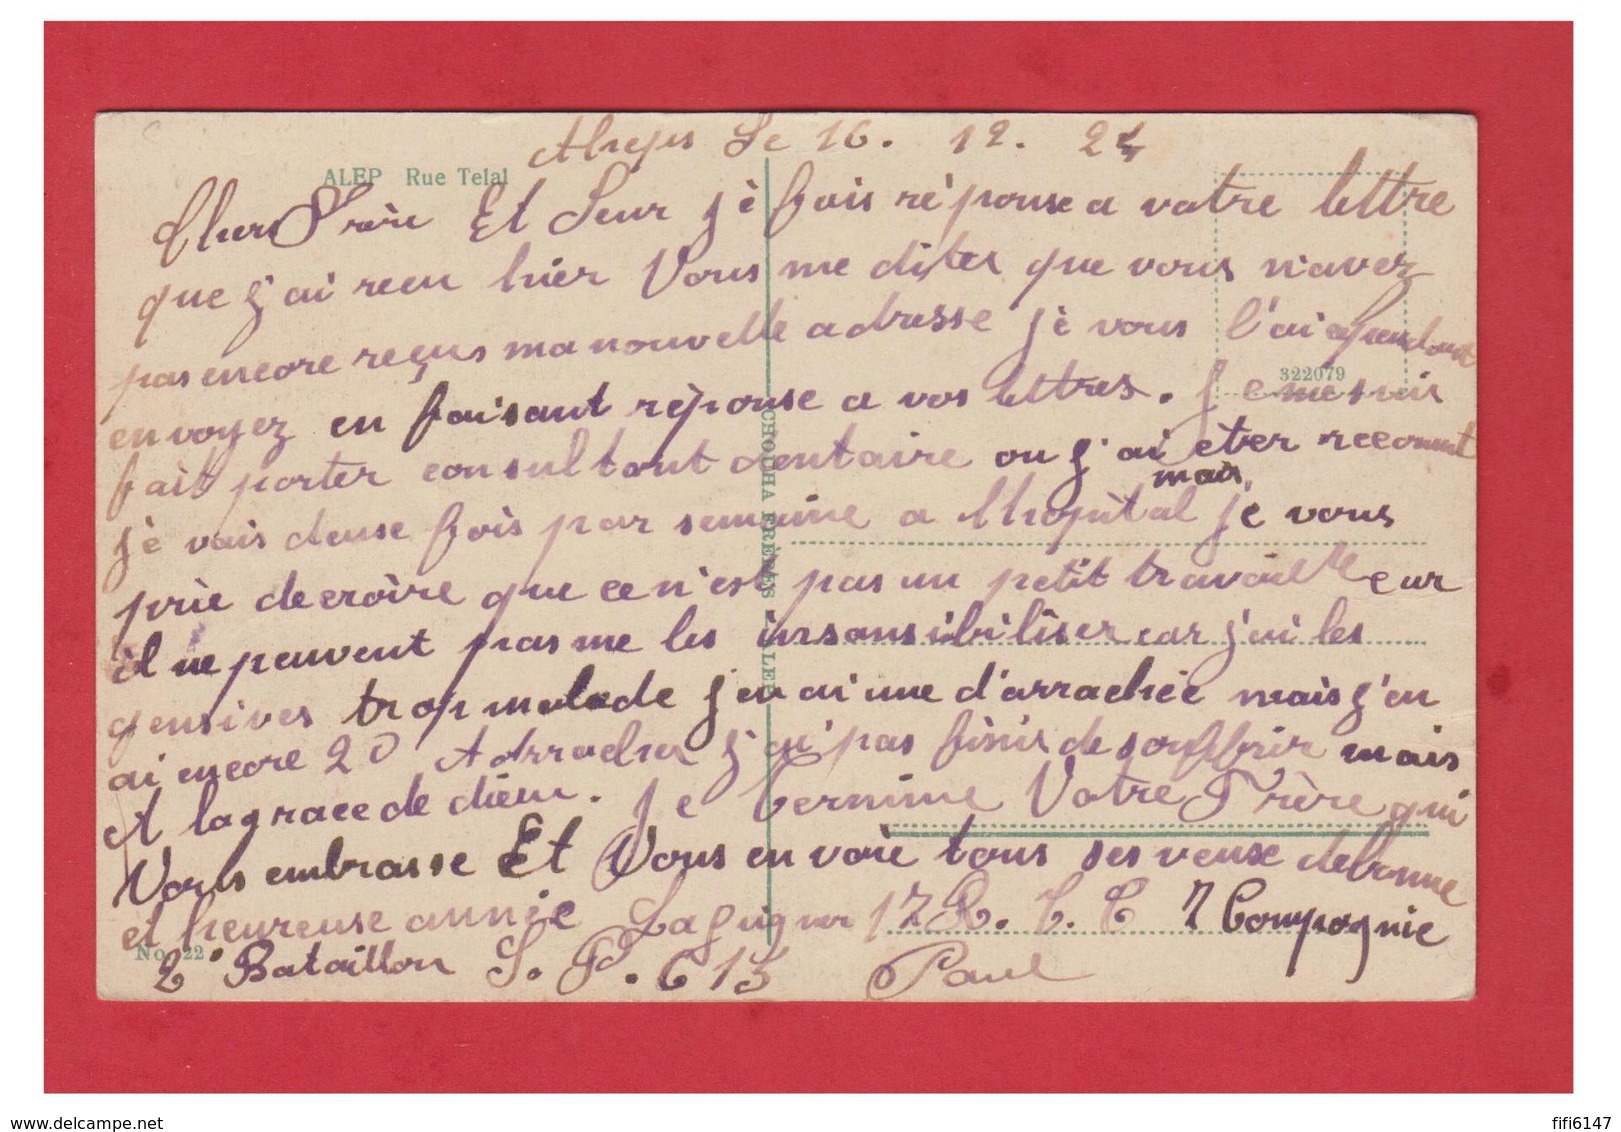 Aleps Le 16. 12. 24
ALEP Rue Telal
Chers Frère Et Seur jè fais rèponse a votre lettre
que j'ai recu hier Vous me dites que vous n'avez
pas encore reçus ma nouvelle adresse jè vous l'ai cependant
322079
envoyez en faisant rèponse a vos lettres. Je me suis
fait porter consultant dentaire ou j'ai eter reconnut
jè vais deuse fois par semaine a lhopital mais je vous
prie de croire que ce n'est pas un petit travaille car
il ne peuvent pas me les insansibiliser car j'ai les
gensives trop malade j'en ai une d'arrachée mais j'en
ai encore 20 A Arracher j'ai pas finir de souffrir mais
A la grace de dieu. Je termine Votre Frère qui
Vous embrasse Et Vous envoie tous ses veuse de bonne
et heureuse année 17 R. T. C 7 Compagnie
No 22
2e Bataillon S. P. 615 Paul
CHOUHA FRÈRES ALEP
fifi6147
www.delcampe.net